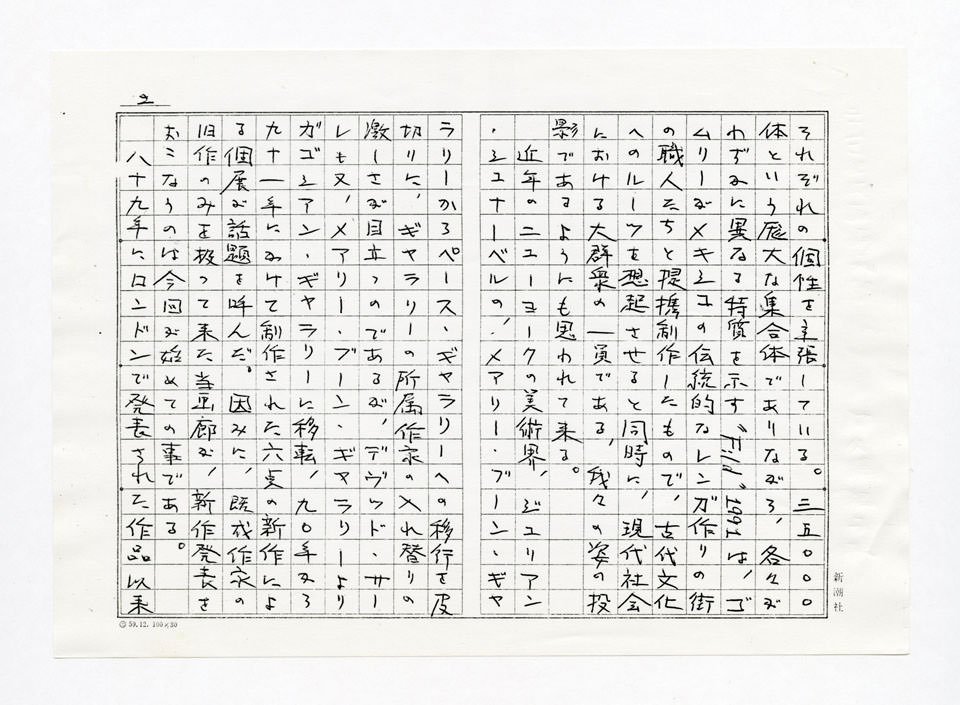 2
それぞれの個性を主張している。三五〇〇〇
体という厖大な集合体でありながら、各々が
わずかに異なる特質を示す"Field"1991は、ゴ
ムリーがメキシコの伝統的なレンガ作りの街
の職人たちと提携制作したもので、古代文化
へのルーツを想起させると同時に、現代社会
における大群衆の一員である、我々の姿の投
影であるようにも思われて来る。
近年のニューヨークの美術界、ジュリアン
・シュナーベルの、メアリー・ブーン・ギャ
ラリーからペース・ギャラリーへの移行を皮
切りに、ギャラリーの所属作家の入れ替りの
激しさが目立つのであるが、デヴィッド・サー
レも又、メアリー・ブーン・ギャラリーより
ガゴシアン・ギャラリーに移転、九〇年から
九十一年にかけて制作された六点の新作によ
る個展が話題を呼んだ。因みに、既成作家の
旧作のみを扱って来た当画廊が、新作発表を
おこなうのは今回が始めての事である。
八十九年にロンドンで発表された作品以来
新潮社
59.12. 100×80